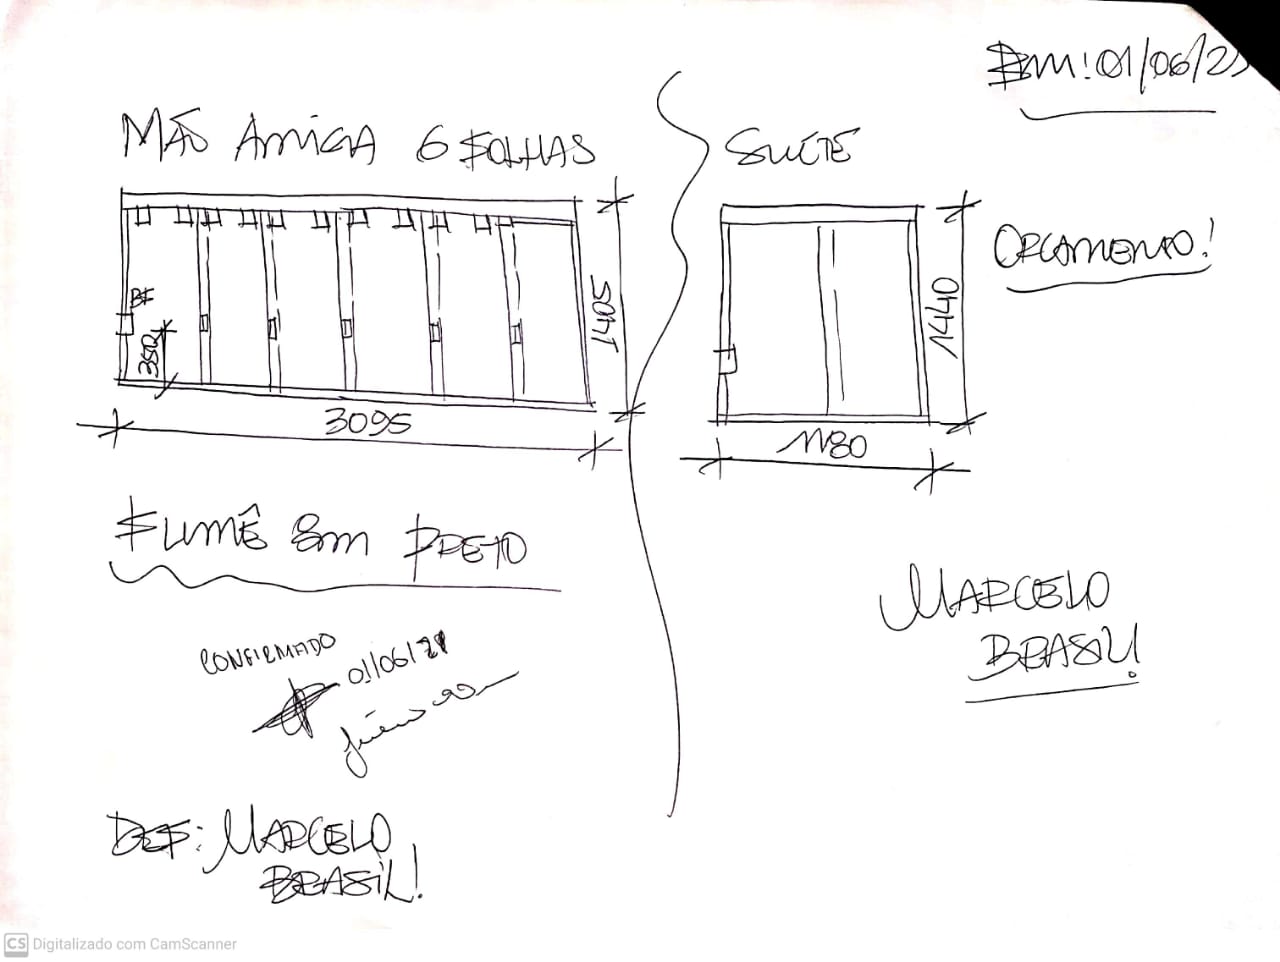 Em: 01/06/21
MÃO AMIGA 6 FOLHAS
BF
350
1405
3095
FUMÊ 8m PRETO
CONFIRMADO
01/06/21
DEF: MARCELO
BRASIL!
SUÍTE
ORÇAMENTO!
1440
1180
MARCELO
BRASIL!
CS Digitalizado com CamScanner